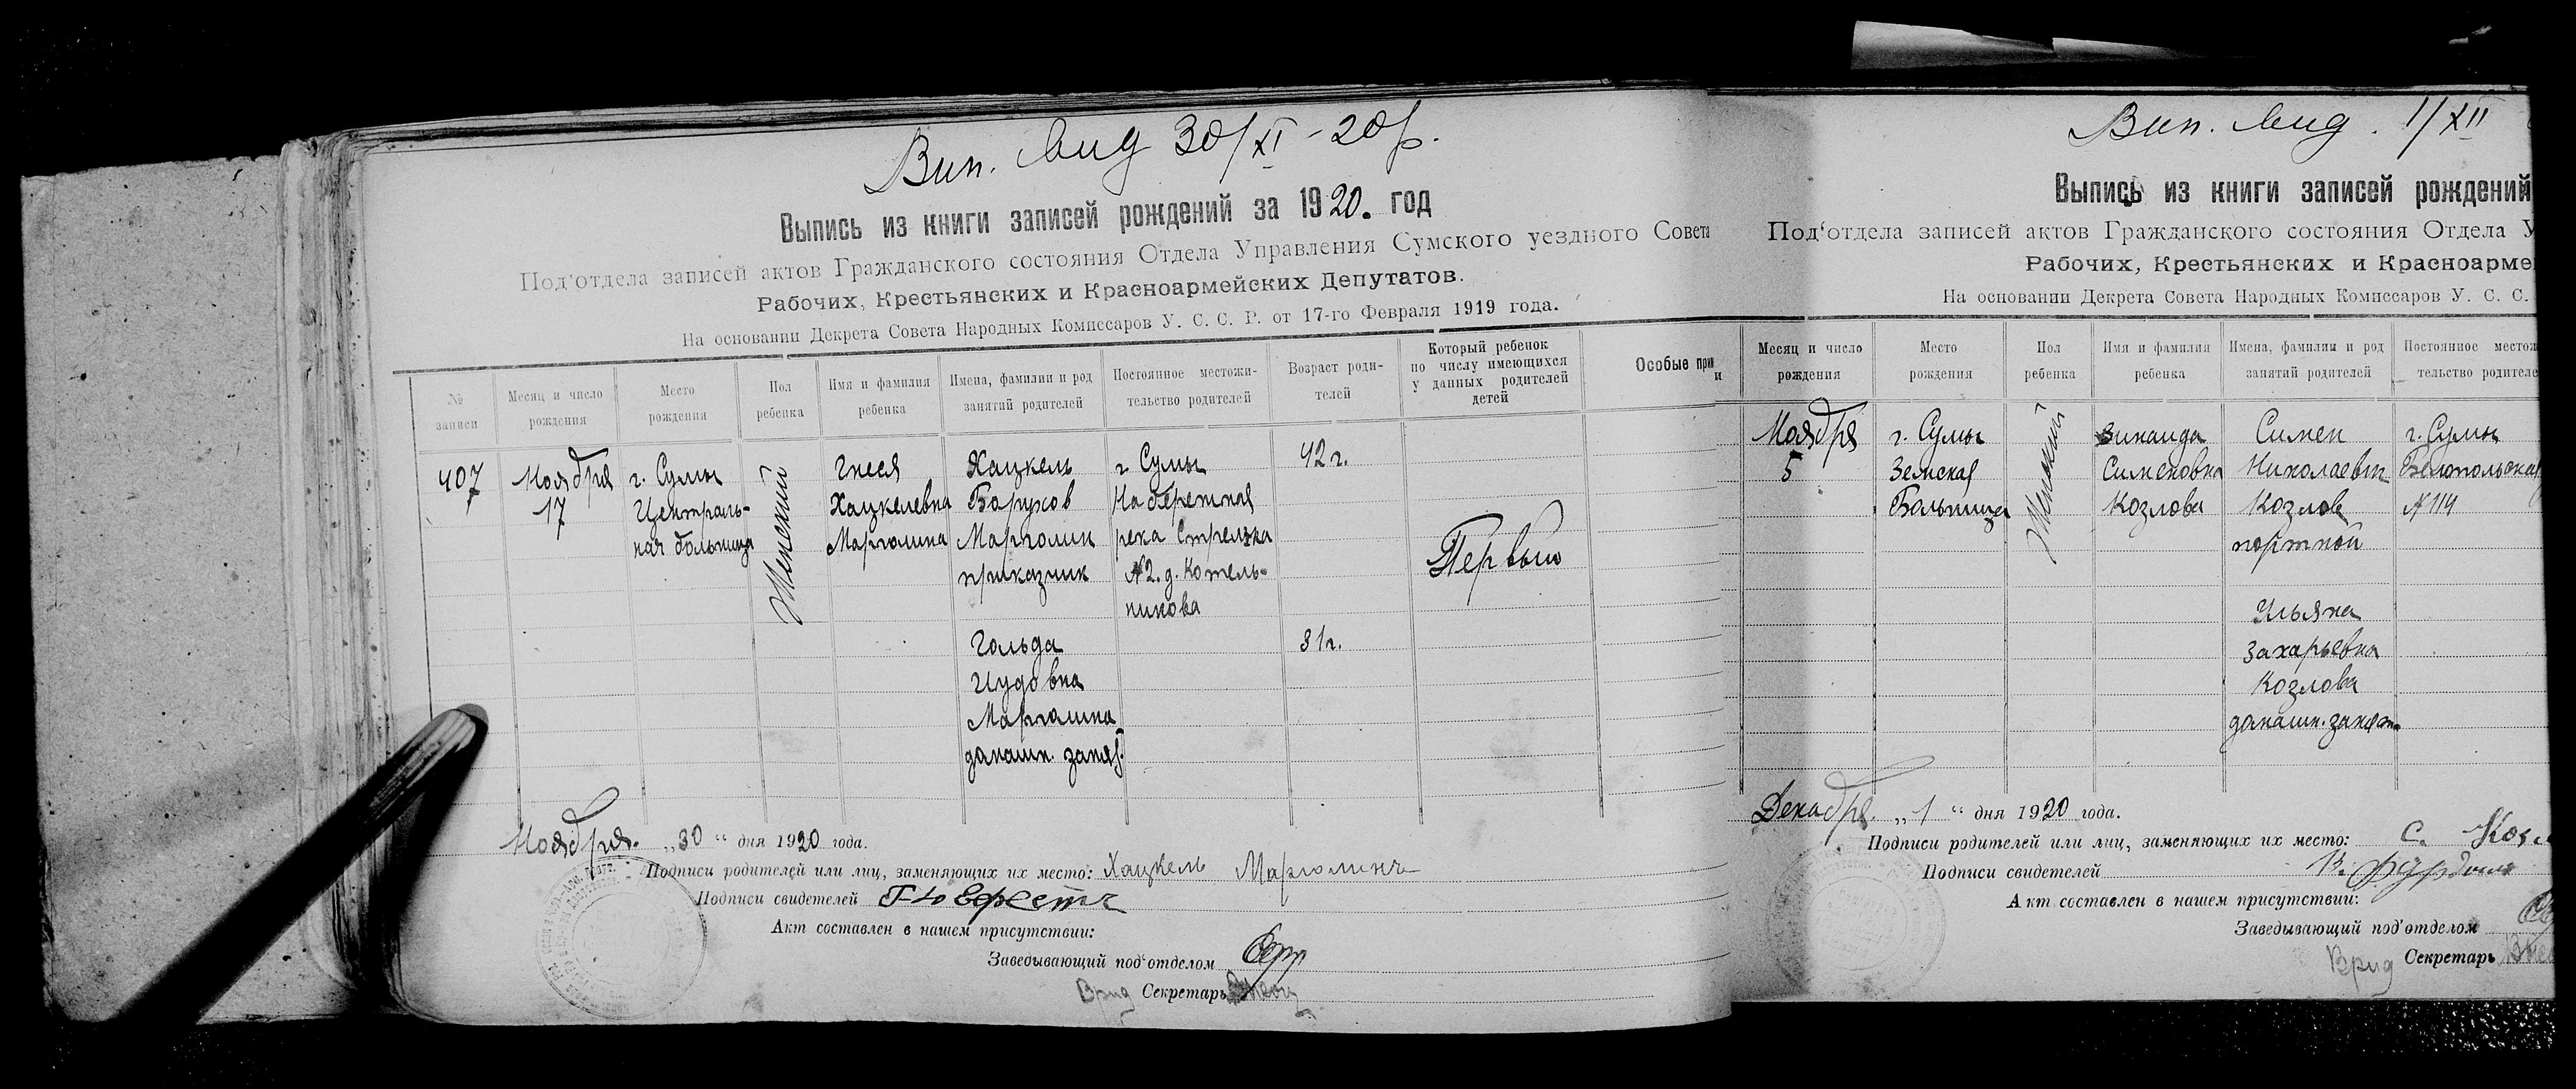 Вип. вид 30/XI - 20 р.
Выпись из книги записей рождений за 1920. год
Под‘отдела записей актов Гражданского состояния Отдела Управления Сумского уездного Совета
Рабочих, Крестьянских и Красноармейских Депутатов.
На основании Декрета Совета Народных Комиссаров У. С. С. Р. от 17-го Февраля 1919 года.
№ записи
Месяц и число рождения
Место рождения
Пол ребенка
Имя и фамилия ребенка
Имена, фамилии и род занятий родителей
Постоянное местожи-
тельство родителей
Возраст роди-
телей
Который ребенок
по числу имеющихся
у данных родителей
детей
Особые при
и
407
Ноября
17
г. Сумы
Централь-
ная больница
Женский
Гнеся
Хацкелевна
Марголина
Хацкель
Борухов
Марголин
приказчик
г. Сумы
Набережная
река Стрелка
№ 2. д. Котель-
никова
42 г.
Первый
Гольда
Иудовна
Марголина
домашн. занят.
31 г.
Ноября. „30“ дня 1920 года.
Подписи родителей или лиц, заменяющих их место: Хацкель Марголинъ
Подписи свидетелей
Акт составлен в нашем присутствии:
Заведывающий под‘отделом
Врид Секретарь
Вип. вид. 1/XII
Выпись из книги записей рождений
Под‘отдела записей актов Гражданского состояния Отдела У
Рабочих, Крестьянских и Красноарме
На основании Декрета Совета Народных Комиссаров У. С. С.
Месяц и число
рождения
Место
рождения
Пол
ребенка
Имя и фамилия
ребенка
Имена, фамилии и род
занятий родителей
Постоянное местож
тельство родителе
Ноября
5
г. Сумы
Земская
Больница
Женский
Зинаида
Сименовна
Козлова
Симен
Николаевич
Козлов
портной
г. Сумы
Белопольская
№ 114
Ульяна
Захарьевна
Козлова
домашн. занят.
Декабря. „1“ дня 1920 года.
Подписи родителей или лиц, заменяющих их место: С. Козл
Подписи свидетелей
Акт составлен в нашем присутствии:
Заведывающий под‘отделом
Врид Секретарь